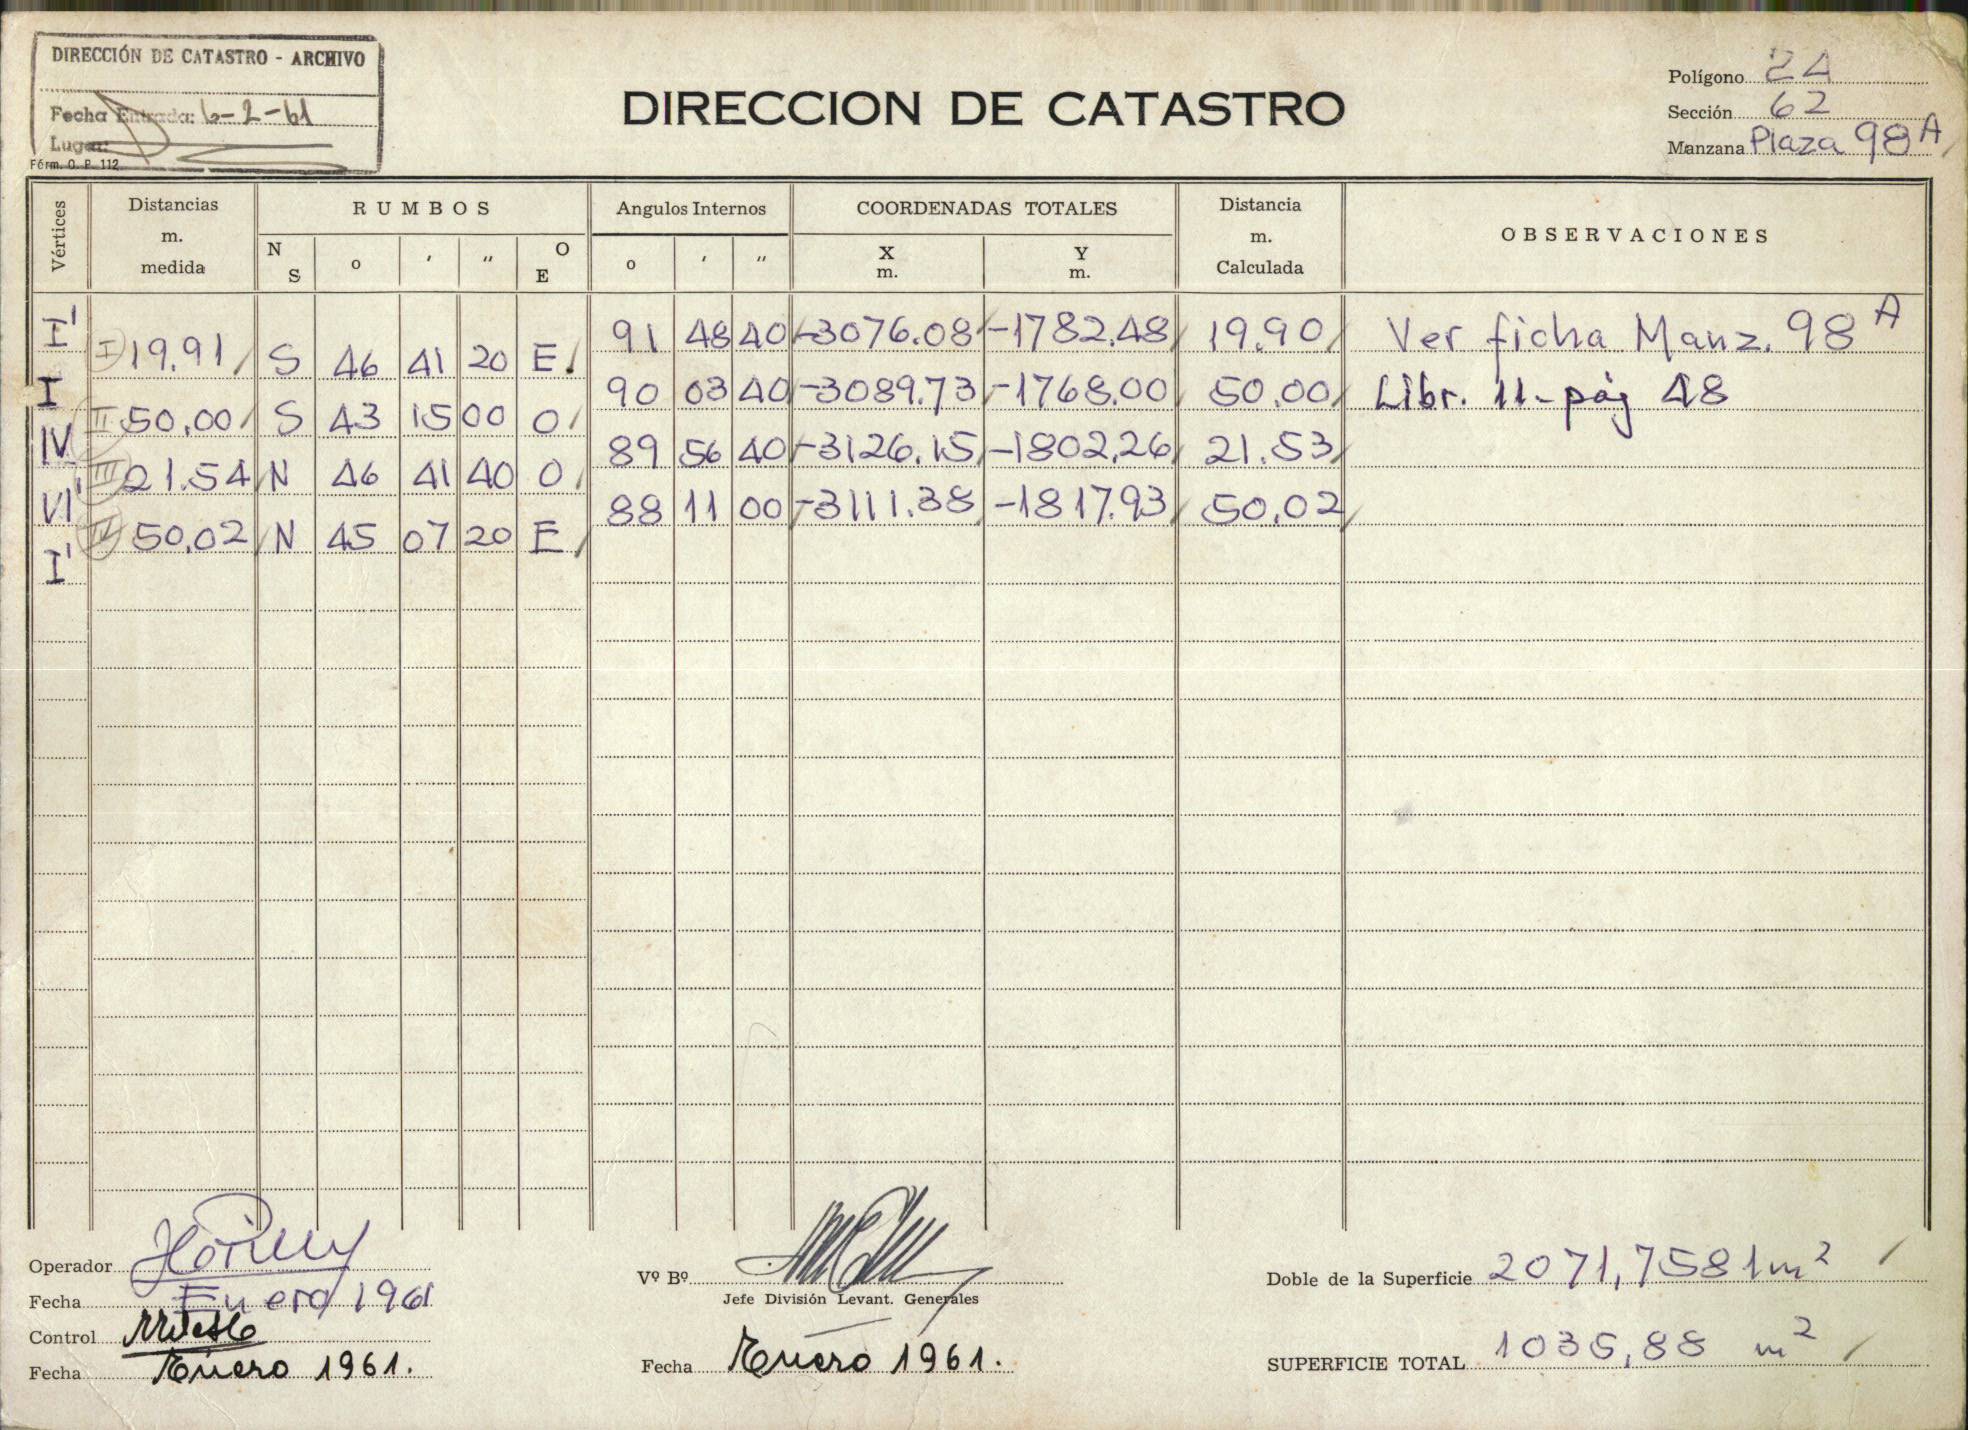 DIRECCIÓN DE CATASTRO - ARCHIVO
Fecha Entrada: 6-2-61
Lugar:
Fórm. O. P. 112
DIRECCION DE CATASTRO
Polígono 24
Sección 62
Manzana Plaza 98 A
Vértices
Distancias m. medida
RUMBOS
N S o ′ ″ O E
Angulos Internos
o ′ ″
COORDENADAS TOTALES
X m. Y m.
Distancia m. Calculada
OBSERVACIONES
I' 91 48 40 -3076.08 -1782.48 19.90 Ver ficha Manz. 98 A
I 19.91 S 46 41 20 E
I 90 03 40 -3089.73 -1768.00 50.00 Libr. 11-pág 48
II 50.00 S 43 15 00 O
IV 89 56 40 -3126.15 -1802.26 21.53
III 21.54 N 46 41 40 O
VI' 88 11 00 -3111.38 -1817.93 50.02
IV 50.02 N 45 07 20 E
I'
Operador
Fecha Enero 1961
Control
Fecha Enero 1961.
Vº Bº
Jefe División Levant. Generales
Fecha Enero 1961.
Doble de la Superficie 2071,7581 m²
SUPERFICIE TOTAL 1035,88 m²